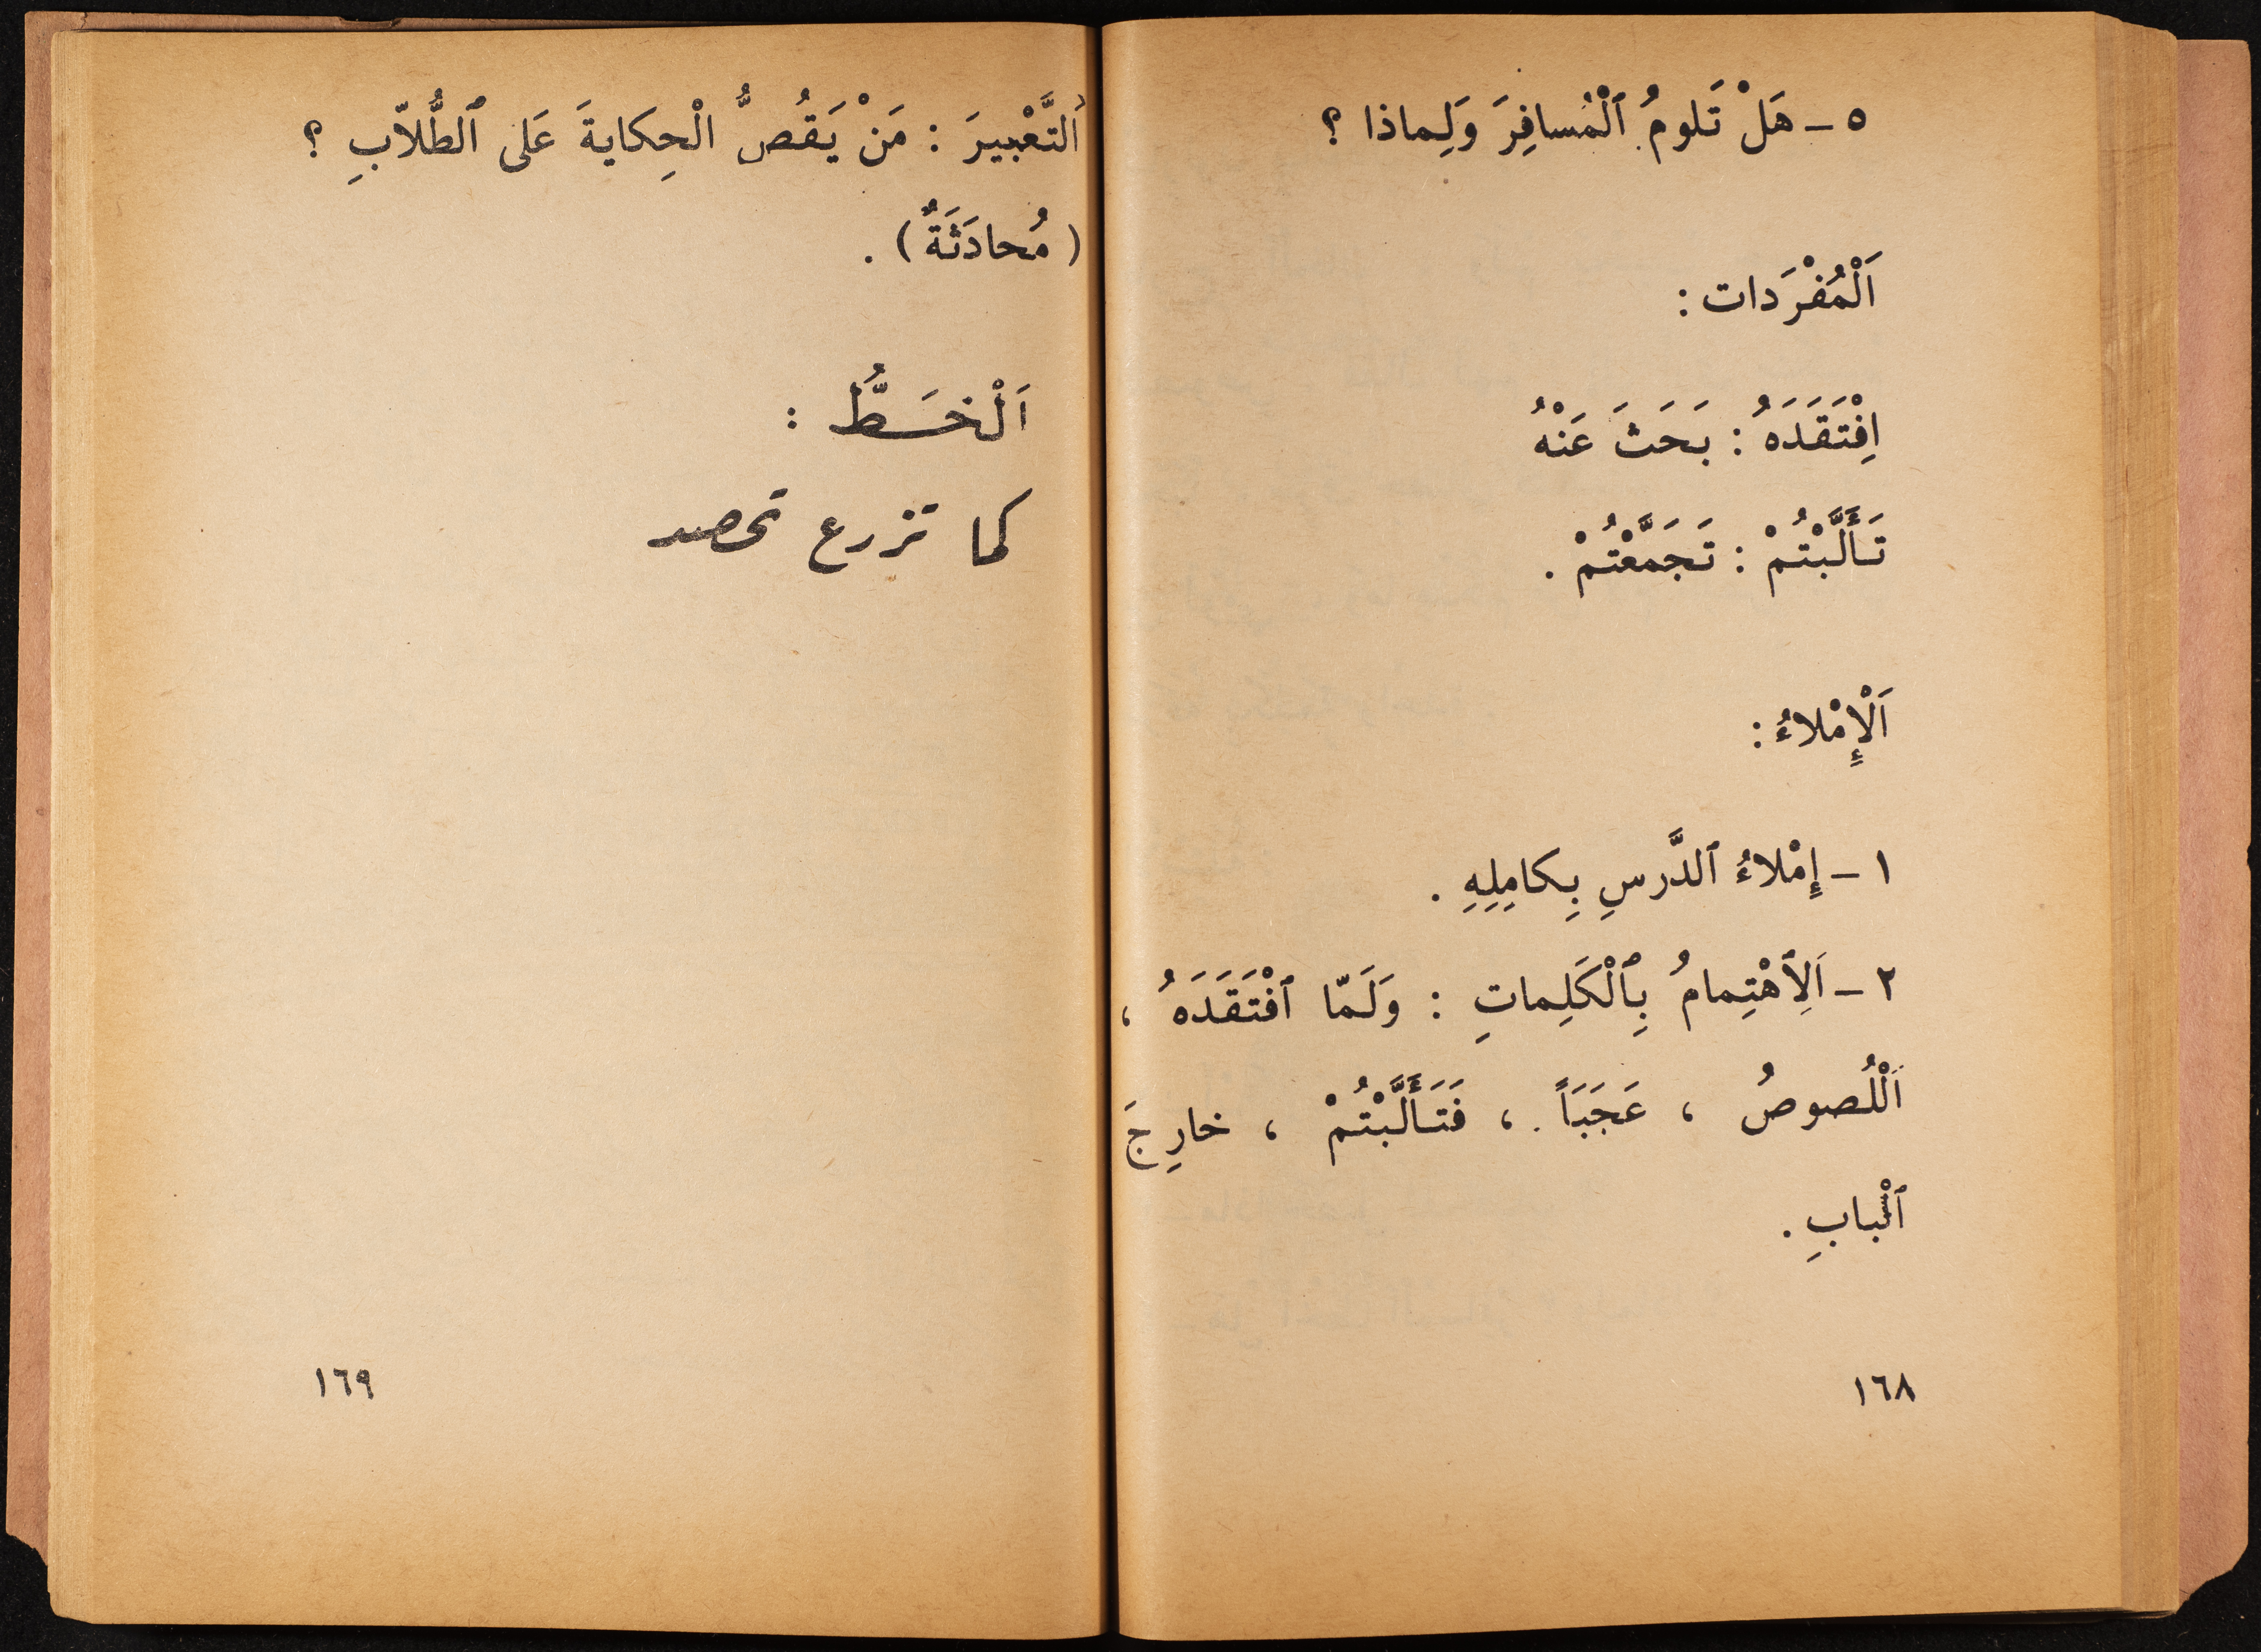 ٥ ـ هَلْ تَلومُ ٱلْمُسافِرَ وَلِماذا ؟
اَلْمُفْرَدات :
اِفْتَقَدَهُ : بَحَثَ عَنْهُ
تَأَلَّبْتُمْ : تَجَمَّعْتُمْ .
اَلْإِمْلاءُ :
١ ـ إِمْلاءُ ٱلدَّرسِ بِكامِلِهِ .
٢ ـ اَلِٱهْتِمامُ بِٱلْكَلِماتِ : وَلَمّا ٱفْتَقَدَهُ ،
اَلْلُصوصُ ، عَجَبَاً . ، فَتَأَلَّبْتُمْ ، خارِجَ
ٱلْبابِ .
١٦٨
اَلتَّعْبيرَ : مَنْ يَقُصُّ الْحِكايةَ عَلى ٱلطُّلاّبِ ؟
( مُحادَثَةٌ ) .
اَلْخَـطُّ :
كما تزرع تحصد
١٦٩